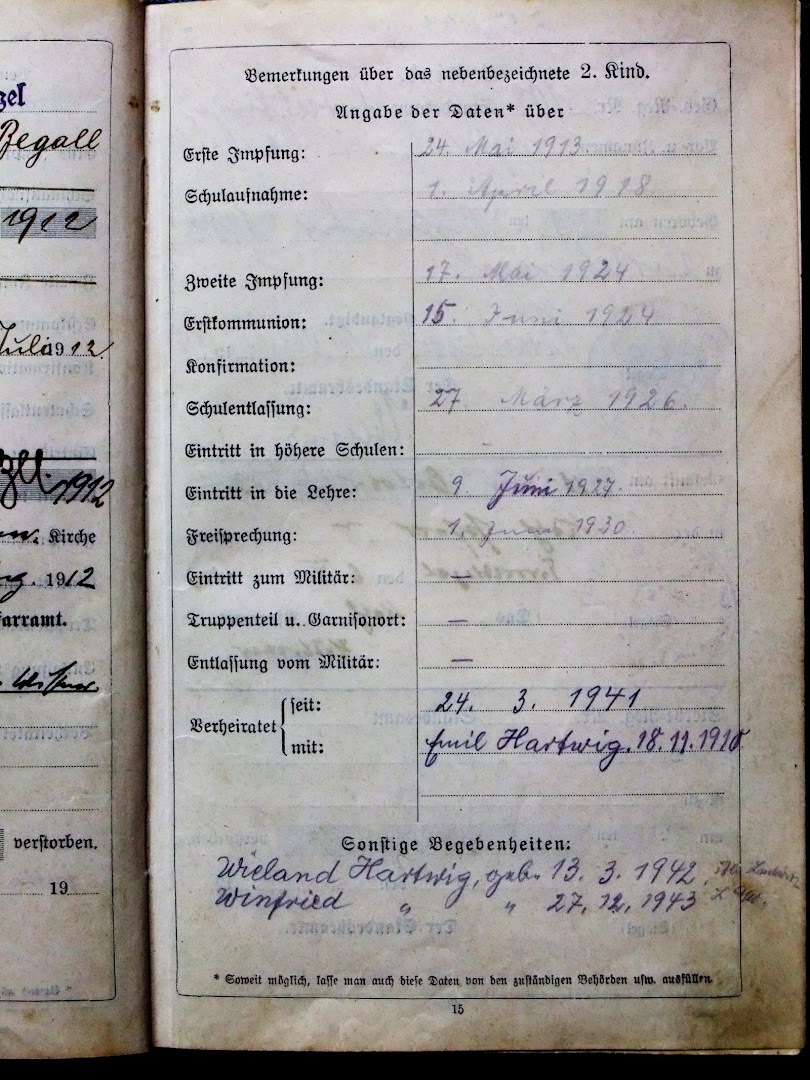 zel
Begall
1912
Juli 1912
1912
Kirche
1912
farramt.
verstorben.
19
Bemerkungen über das nebenbezeichnete 2. Kind.
Angabe der Daten* über
Erste Impfung: 24. Mai 1913
Schulaufnahme: 1. April 1918
Zweite Impfung: 17. Mai 1924
Erstkommunion: 15. Juni 1924
Konfirmation:
Schulentlassung: 27 März 1926.
Eintritt in höhere Schulen: -
Eintritt in die Lehre: 9. Juni 1927.
Freisprechung: 1. Juni 1930.
Eintritt zum Militär: —
Truppenteil u. Garnisonort: —
Entlassung vom Militär: —
Verheiratet { seit: 24. 3. 1941
mit: Emil Hartwig. 18.11.1910
Sonstige Begebenheiten:
Wieland Hartwig, geb. 13. 3. 1942,
Winfried " " 27. 12. 1943
* Soweit möglich, lasse man auch diese Daten von den zuständigen Behörden usw. ausfüllen.
15